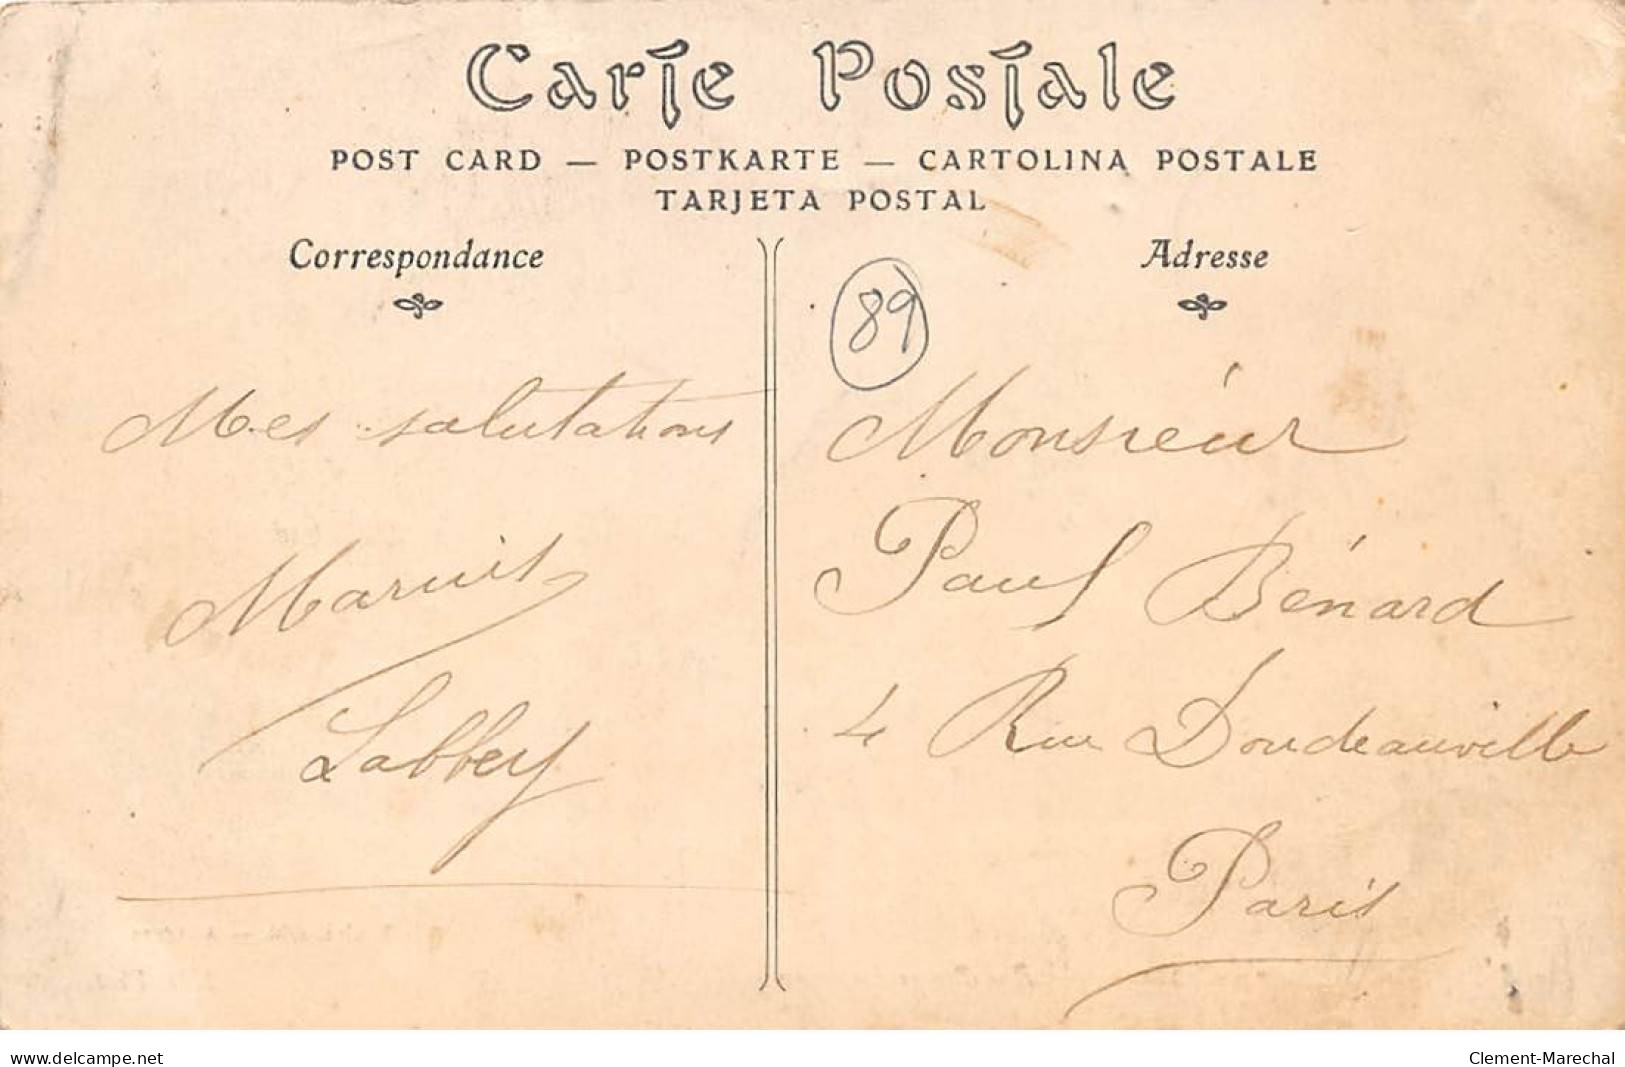 Carte Postale
POST CARD — POSTKARTE — CARTOLINA POSTALE
TARJETA POSTAL
Correspondance
Adresse
89
Mes salutations
Marius
Labbey
Monsieur
Paul Bénard
4 Rue Doudeauville
Paris
www.delcampe.net
Clement-Marechal